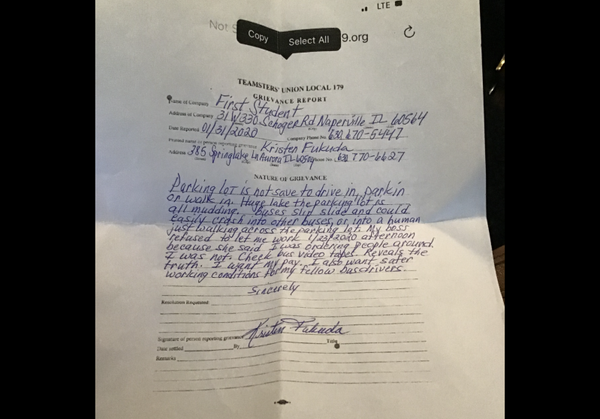 LTE
Not S
Copy
Select All
9.org
TEAMSTERS' UNION LOCAL 179
GRIEVANCE REPORT
Name of Company First Student
Address of Company 31W330 Schoger Rd Naperville IL 60564
Date Reported 01/31/2020 Company Phone No. 630 670-5447
Printed name of person reporting grievance Kristen Fukuda
Address 385 Springlake Ln Aurora IL Phone No. 630 770-6627
NATURE OF GRIEVANCE
Parking lot is not save to drive in, park in
or walk in. Huge lake the parking lot is
all mudding. Buses slip slide and could
easily crash into other buses, or into a human
just walking across the parking lot. My boss
refused to let me work 1/23/2020 afternoon
because she said I was ordering people around.
I was not. Check bus video tapes. Reveals the
truth. I want my pay. I also want safer
working conditions for my fellow busdrivers.
Sincerely
Resolution Requested
Kristen Fukuda
Signature of person reporting grievance
Date settled By Title
Remarks